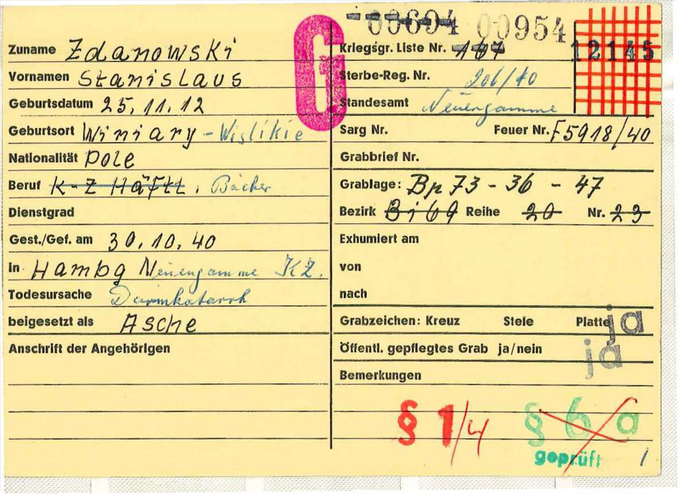 00694 00954
Zuname Zdanowski
Kriegsgr. Liste Nr. 107
12145
G
Vornamen Stanislaus
Sterbe-Reg. Nr. 206/40
Geburtsdatum 25.11.12
Standesamt Neuengamme
Geburtsort Winiary - Wislikie
Sarg Nr. Feuer Nr. F5918/40
Nationalität Pole
Grabbrief Nr.
Beruf K-Z Häftl. Bäcker
Grablage: Bp 73 - 36 - 47
Dienstgrad
Bezirk Bi 69 Reihe 20 Nr. 23
Gest./Gef. am 30.10.40
Exhumiert am
in Hambg Neuengamme KZ.
von
Todesursache Darmkatarrh
nach
beigesetzt als Asche
Grabzeichen: Kreuz Stele Platte ja
Anschrift der Angehörigen
Öffentl. gepflegtes Grab ja/nein ja
Bemerkungen
§ 1/4 § 6 a
geprüft